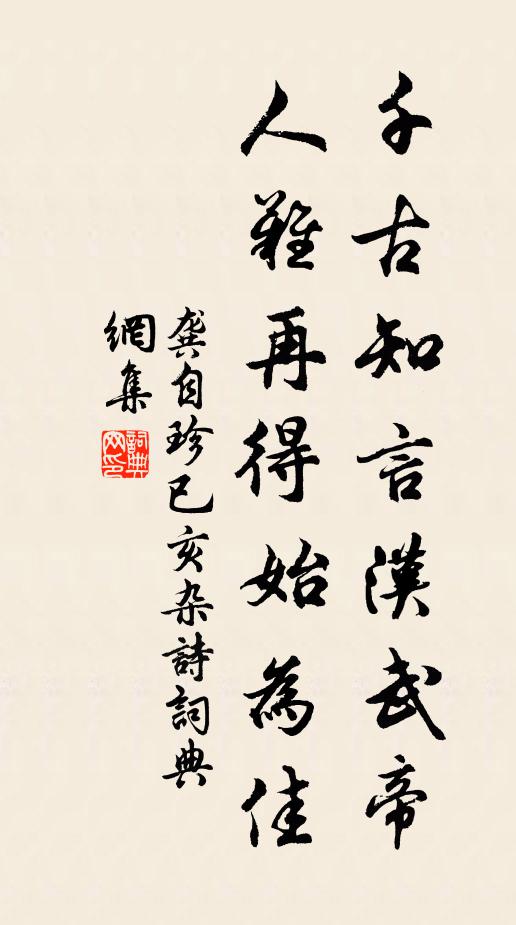 千古知言漢武帝
人難再得始為佳
龚自珍已亥杂詩詞典
網集
詞典網印